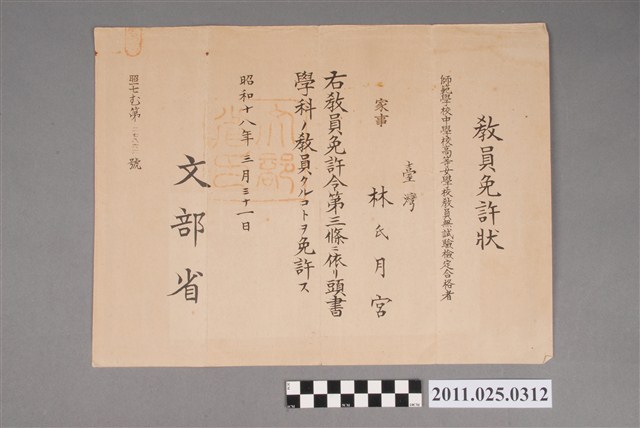 教員免許狀
師範學校中學校高等女學校教員無試驗檢定合格者
家事
臺灣
林氏月宮
右教員免許令第三條ニ依リ頭書
學科ノ教員タルコトヲ免許ス
昭和十八年三月三十一日
文部省
文部省印
號
2011.025.0312